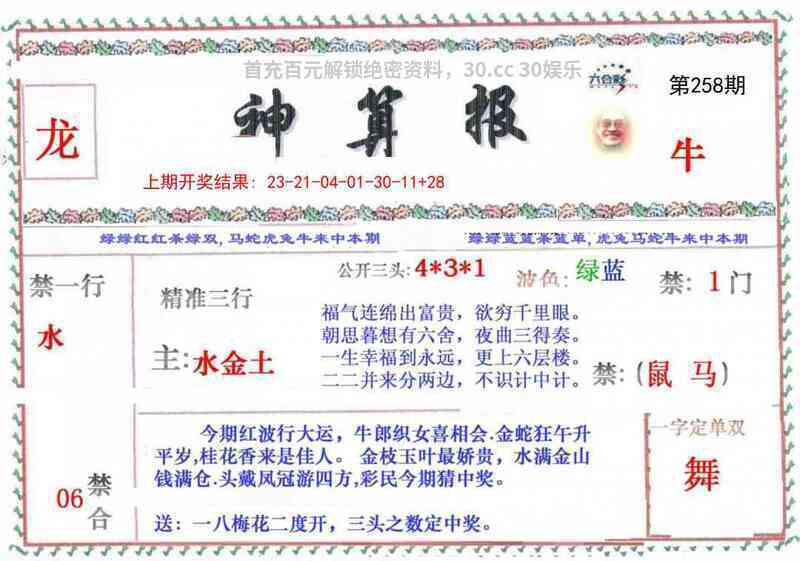 首充百元解锁绝密资料，30.cc 30娱乐
六合彩
第258期
龙
神算报
牛
上期开奖结果：23-21-04-01-30-11+28
绿绿红红条绿双,马蛇虎兔牛来中本期
绿绿蓝蓝条蓝单,虎兔马蛇牛来中本期
禁一行
水
精准三行
主:水金土
公开三头:4*3*1
波色:绿蓝
禁:1门
福气连绵出富贵，欲穷千里眼。
朝思暮想有六舍，夜曲三得奏。
一生幸福到永远，更上六层楼。
二二并来分两边，不识计中计。
禁:(鼠 马)
06
禁合
今期红波行大运，牛郎织女喜相会.金蛇狂午升
平岁,桂花香来是佳人。 金枝玉叶最娇贵，水满金山
钱满仓.头戴凤冠游四方,彩民今期猜中奖。
送：一八梅花二度开，三头之数定中奖。
一字定单双
舞